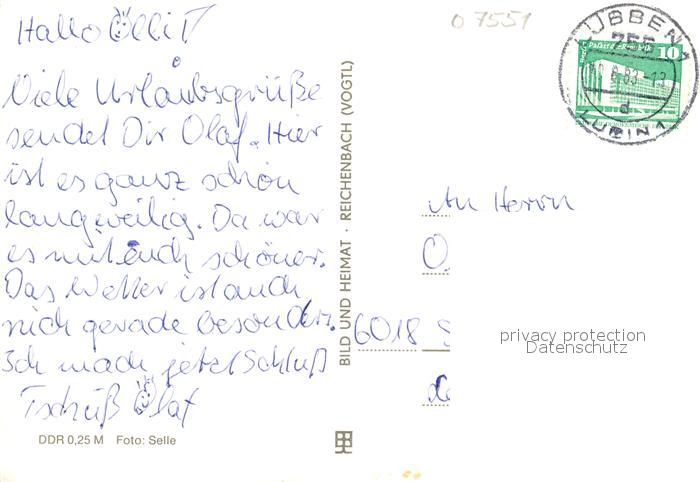 Hallo Ölli!
Viele Urlaubsgrüße
sendet Dir Olaf. Hier
ist es ganz schön
langweilig. Da war
es mit euch schöner.
Das Wetter ist auch
nich gerade besonders.
Ich mach jetzt Schluß
Tschüß Olaf
DDR 0,25 M Foto: Selle
BILD UND HEIMAT · REICHENBACH (VOGTL)
O 7551
LÜBBEN 1
755
83-13
d
LUBIN 1
Palast der Republik
10
An Herrn
O.
6018 S
privacy protection
Datenschutz